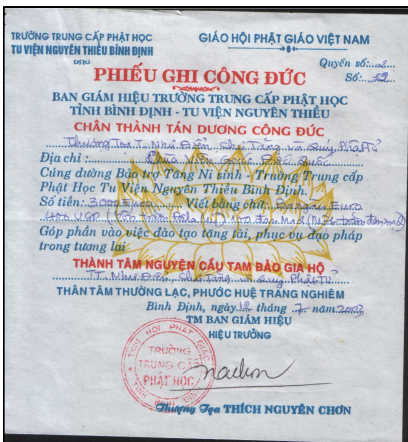 TRƯỜNG TRUNG CẤP PHẬT HỌC
TU VIỆN NGUYÊN THIỀU BÌNH ĐỊNH
GIÁO HỘI PHẬT GIÁO VIỆT NAM
Quyển số:
Số: 32
PHIẾU GHI CÔNG ĐỨC
BAN GIÁM HIỆU TRƯỜNG TRUNG CẤP PHẬT HỌC
TỈNH BÌNH ĐỊNH - TU VIỆN NGUYÊN THIỀU
CHÂN THÀNH TÁN DƯƠNG CÔNG ĐỨC
Thượng Tọa T. Như Điển, Chư Tăng và Quý Phật Tử
Địa chỉ: Chùa Viên Giác Đức Quốc
Cúng dường Bảo trợ Tăng Ni sinh - Trường Trung cấp
Phật Học Tu Viện Nguyên Thiều Bình Định.
Số tiền: 3000 Euro Viết bằng chữ: Ba ngàn Euro
400 USD
Góp phần vào việc đào tạo tăng tài, phục vụ đạo pháp
trong tương lai
THÀNH TÂM NGUYỆN CẦU TAM BẢO GIA HỘ
TT. Như Điển, Chư Tăng và Quý Phật Tử
THÂN TÂM THƯỜNG LẠC, PHƯỚC HUỆ TRANG NGHIÊM
Bình Định, ngày 12 tháng 7 năm 2003
TM BAN GIÁM HIỆU
HIỆU TRƯỞNG
TRƯỜNG
TRUNG CẤP
PHẬT HỌC
Thượng Tọa THÍCH NGUYÊN CHƠN